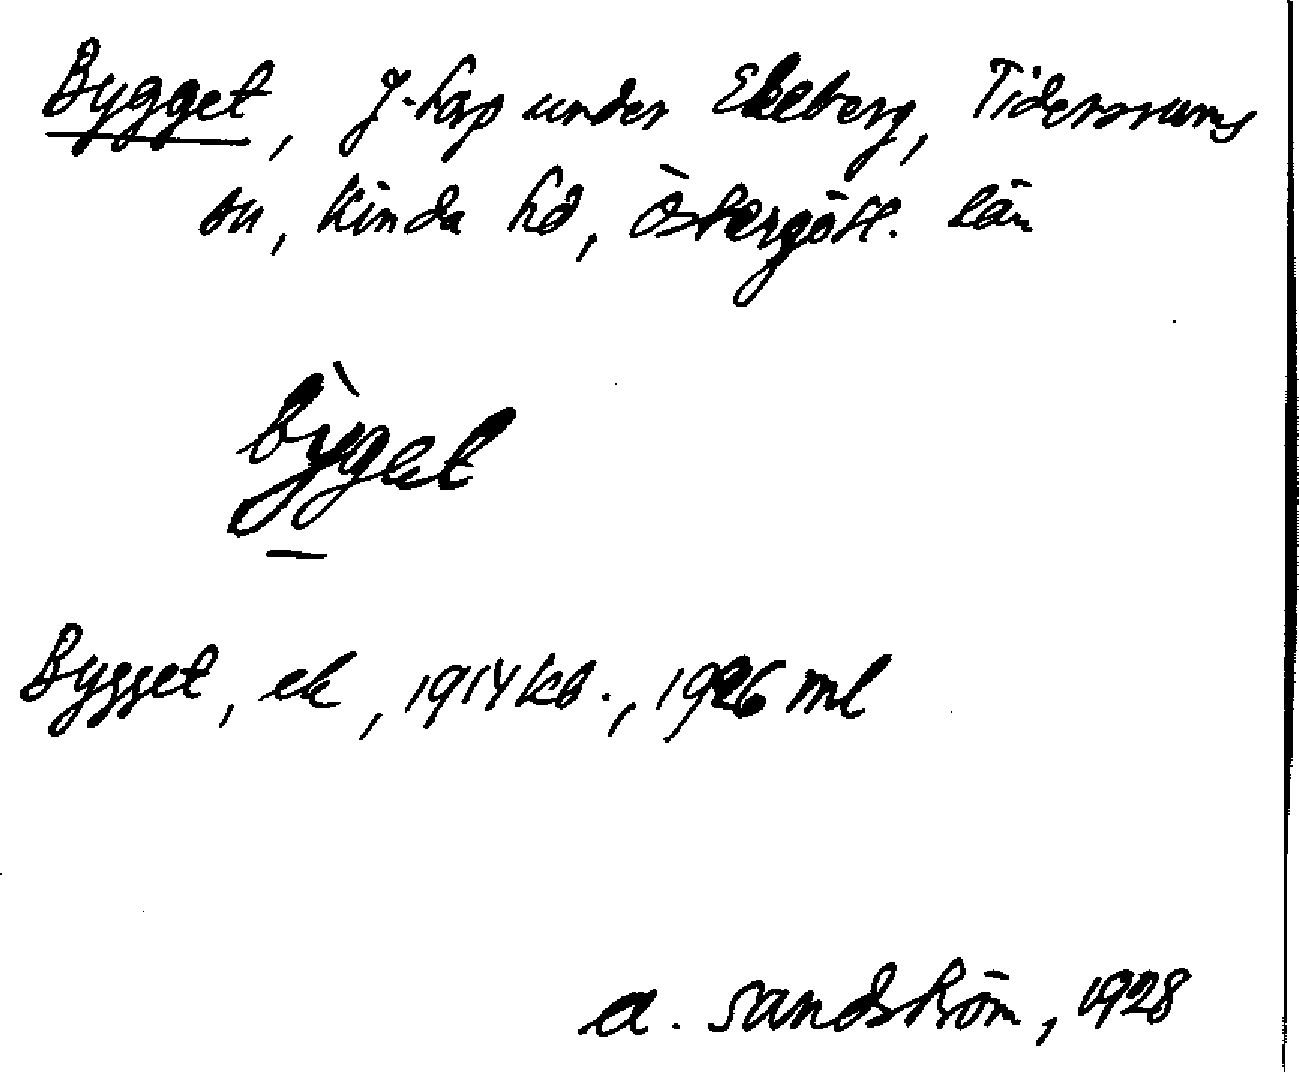 Bygget, J-torp under Ekeberg, Tidersrums
sn, Kinda hd, Östergötl. län
bỳget
Bygget, ek, 1914 kb., 1926 ml
A. Sandström, 1928